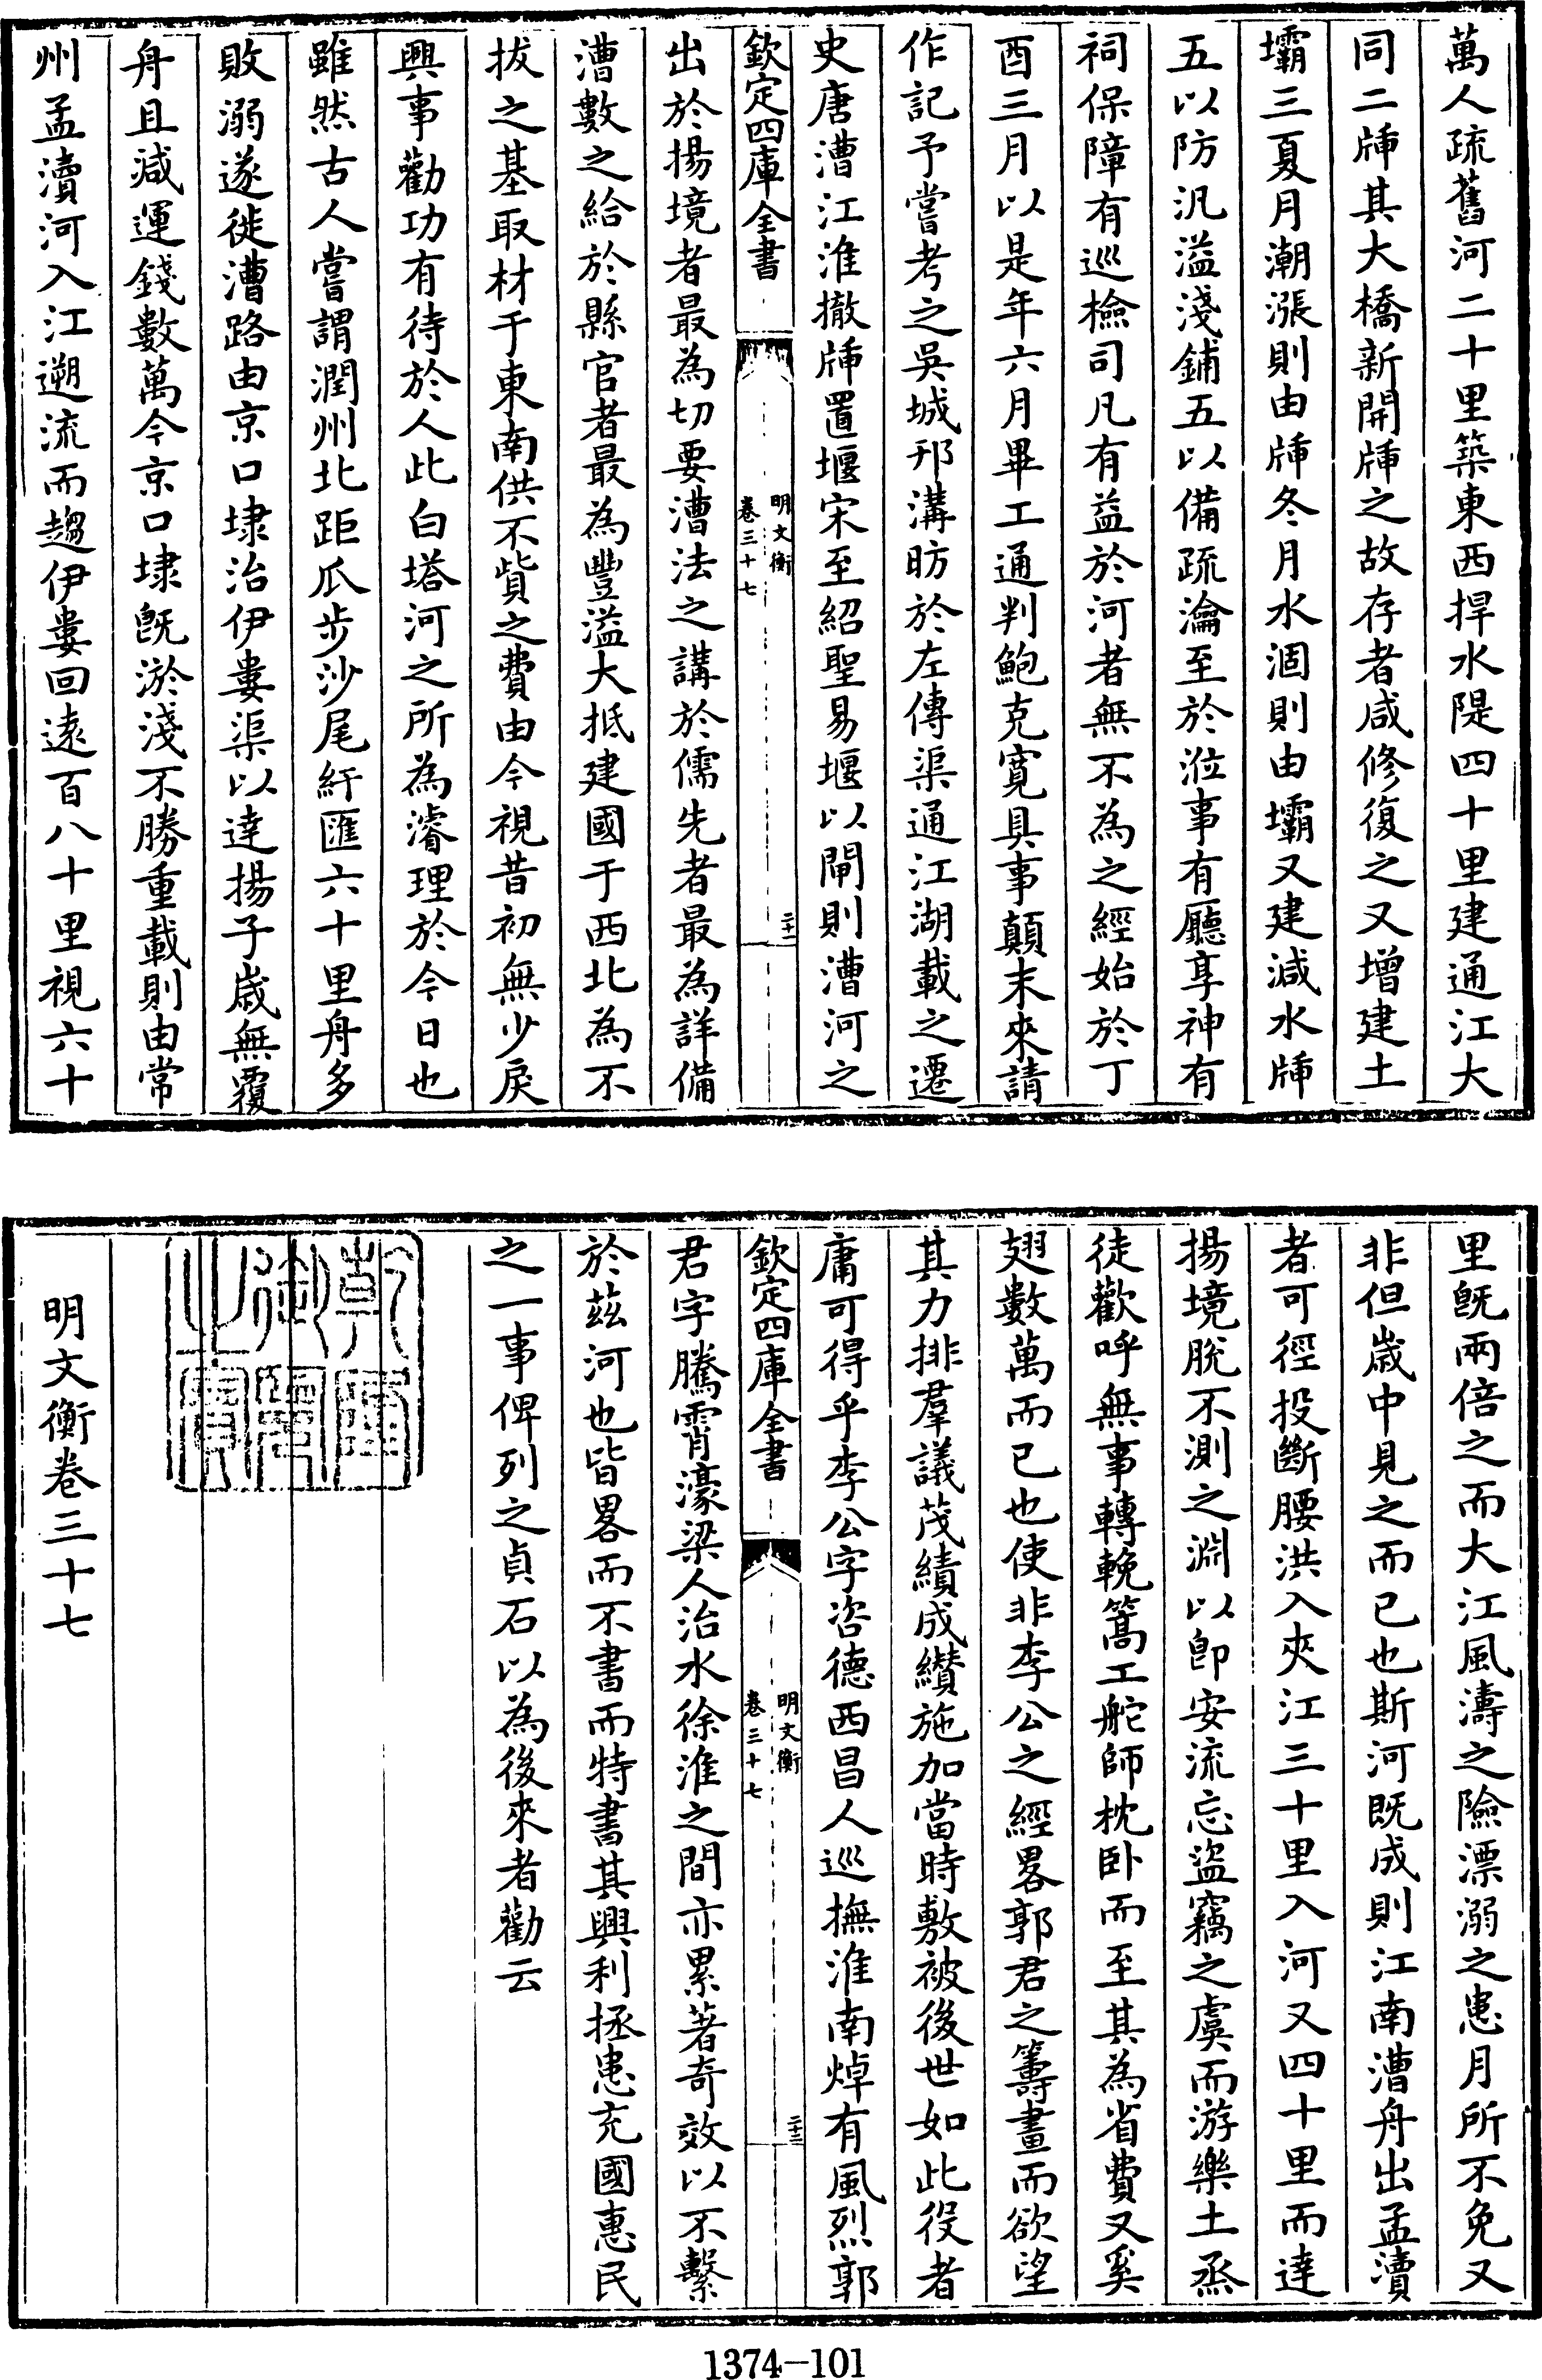 萬人疏舊河二十里築東西捍水隄四十里建通江大
同二牐其大橋新開牐之故存者咸修復之又增建土
壩三夏月潮漲則由牐冬月水涸則由壩又建減水牐
五以防汎溢淺鋪五以備疏瀹至於涖事有廳享神有
祠保障有巡檢司凡有益於河者無不為之經始於丁
酉三月以是年六月畢工通判鮑克寛具事顛末來請
作記予嘗考之吳城邗溝昉於左傳渠通江湖載之遷
史唐漕江淮撤牐置堰宋至紹聖易堰以閘則漕河之
欽定四庫全書
明文衡
卷三十七
二十一
出於揚境者最為切要漕法之講於儒先者最為詳備
漕數之給於縣官者最為豐溢大抵建國于西北為不
拔之基取材于東南供不貲之費由今視昔初無少戾
興事勸功有待於人此白塔河之所為濬理於今日也
雖然古人嘗謂潤州北距瓜步沙尾紆匯六十里舟多
敗溺遂徙漕路由京口埭治伊婁渠以達揚子歲無覆
舟且減運錢數萬今京口埭旣淤淺不勝重載則由常
州孟瀆河入江遡流而趨伊婁回遠百八十里視六十
里旣兩倍之而大江風濤之險漂溺之患月所不免又
非但歲中見之而已也斯河既成則江南漕舟出孟瀆
者可徑投斷腰洪入夾江三十里入河又四十里而達
揚境脫不測之淵以卽安流忘盜竊之虞而游樂土烝
徒歡呼無事轉輓篙工舵師枕卧而至其為省費又奚
翅數萬而已也使非李公之經畧郭君之籌畫而欲望
其力排羣議茂績成纘施加當時敷被後世如此役者
庸可得乎李公字咨德西昌人巡撫淮南焯有風烈郭
欽定四庫全書
明文衡
卷三十七
二十二
君字騰霄濠梁人治水徐淮之間亦累著奇效以不繫
於茲河也皆畧而不書而特書其興利拯患充國惠民
之一事俾列之貞石以為後來者勸云
乾隆御覽之寶
明文衡卷三十七
1374-101